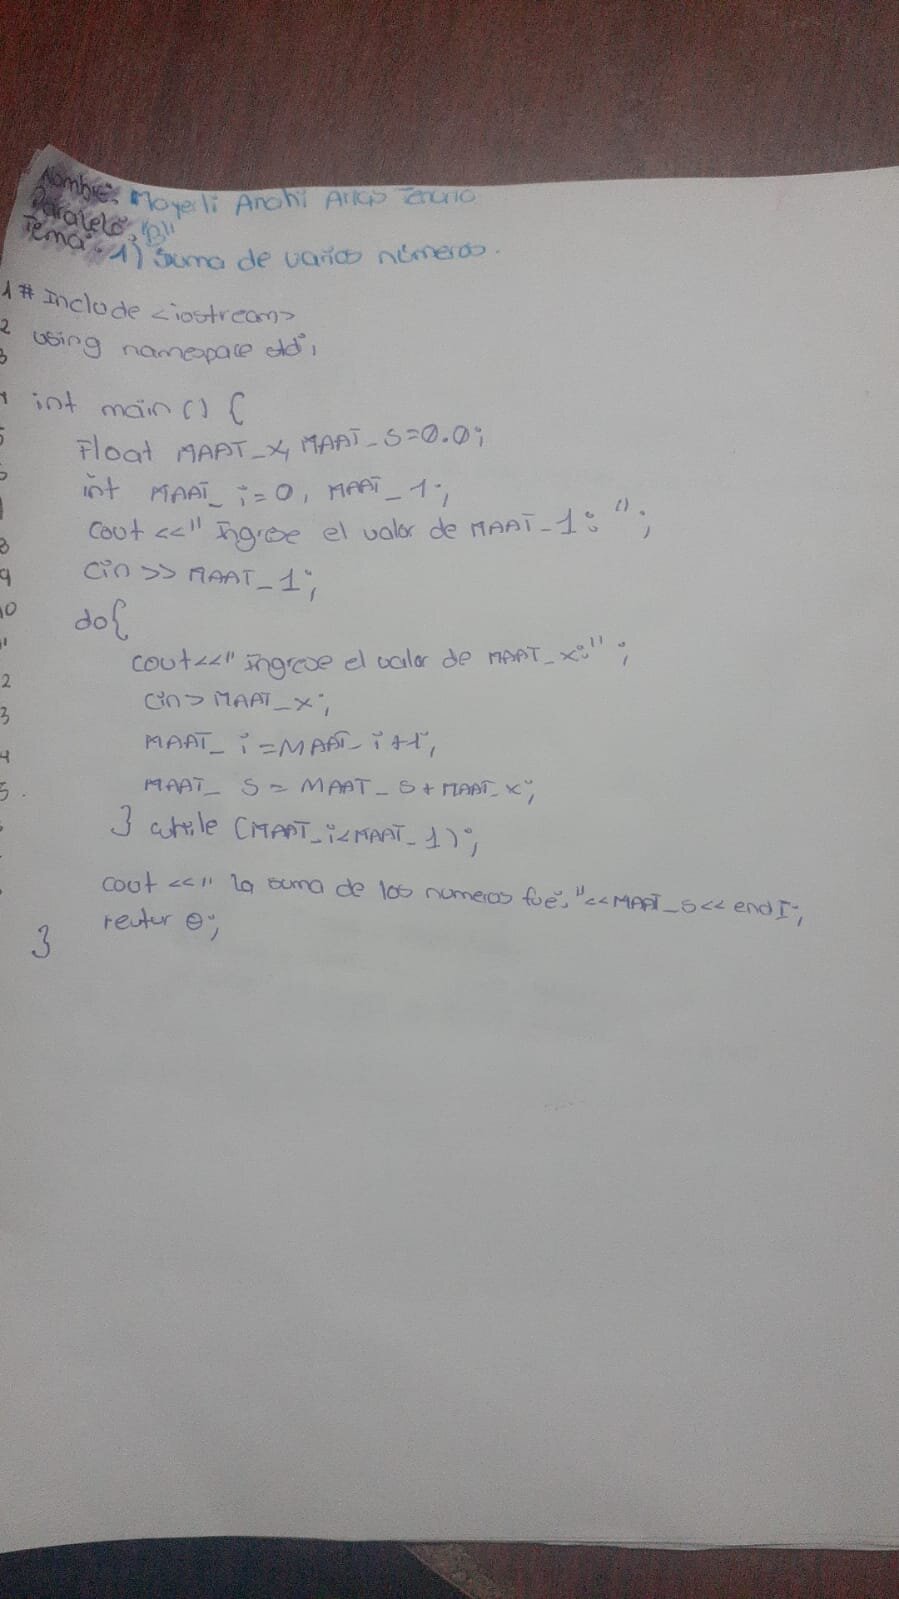 Nombre: Mayerli Anahi Arias Tenorio
Paralelo: "B"
Tema: 1) Suma de varios números.
1 # Include <iostream>
2 using namespace std;
3
int main () {
Float MAAT_x, MAAT_S=0.0;
int MAAT_i=0, MAAT_1;
8 cout <<" Ingrese el valor de MAAT_1: ";
9 cin >> MAAT_1;
10 do{
11 cout<<" Ingrese el valor de MAAT_x:" ;
2 cin> MAAT_x;
3 MAAT_ i=MAAT_ i+1;
4 MAAT_ S = MAAT_ S + MAAT_x;
5. } while (MAAT_i<MAAT_1);
cout <<" la suma de los numeros fue: "<<MAAT_S<< endI;
retur 0;
}